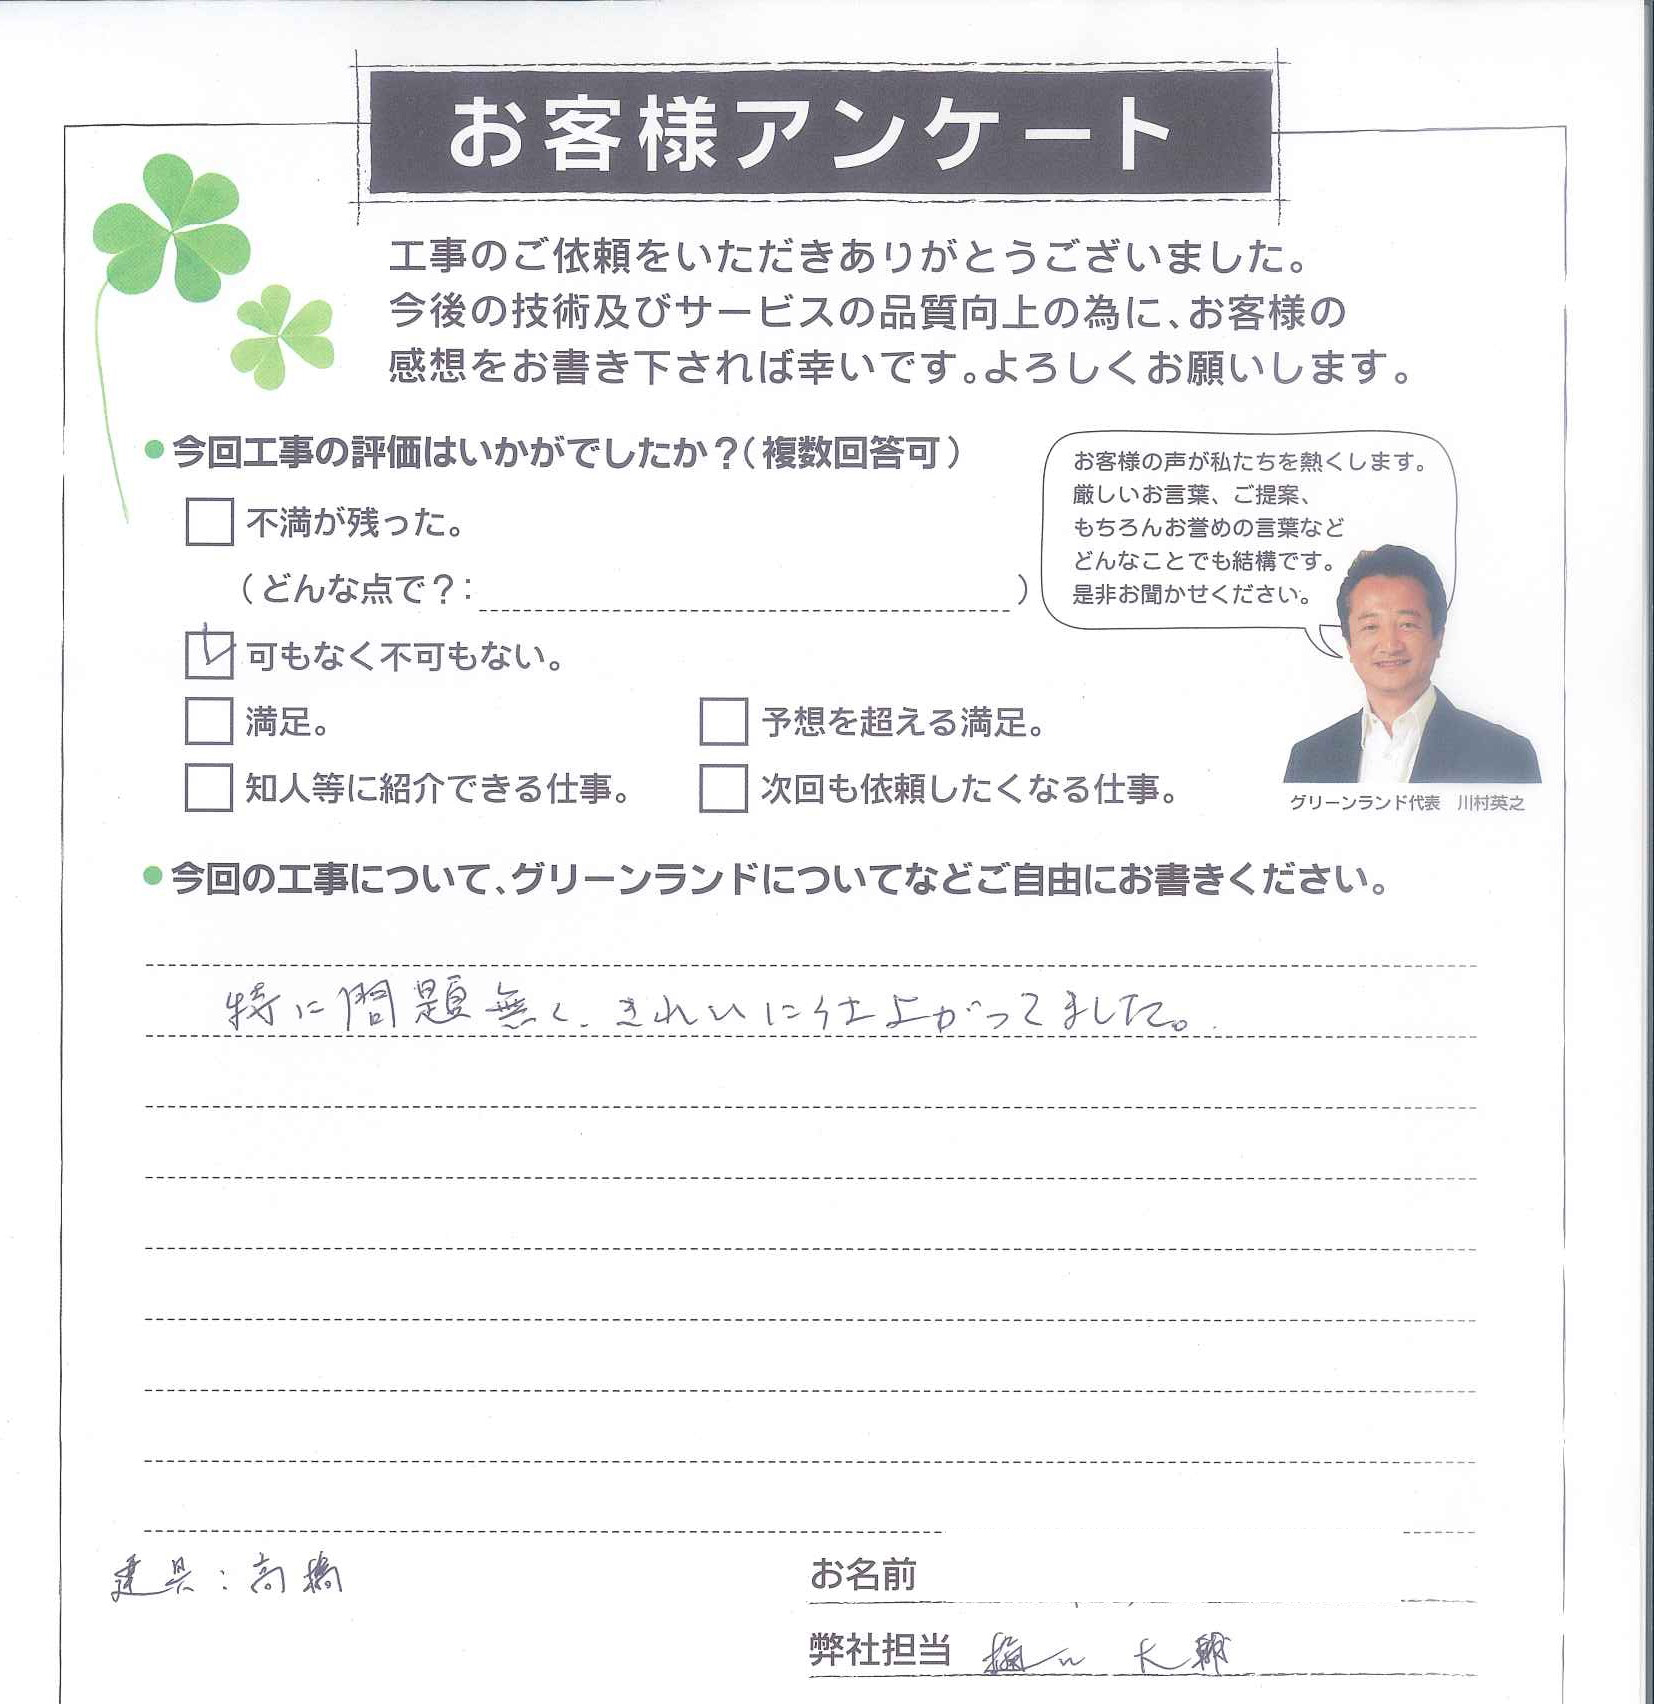 お客様アンケート
工事のご依頼をいただきありがとうございました。
今後の技術及びサービスの品質向上の為に、お客様の
感想をお書き下されば幸いです。よろしくお願いします。
●今回工事の評価はいかがでしたか？（複数回答可）
不満が残った。
（どんな点で？：　）
可もなく不可もない。
満足。　予想を超える満足。
知人等に紹介できる仕事。　次回も依頼したくなる仕事。
お客様の声が私たちを熱くします。
厳しいお言葉、ご提案、
もちろんお誉めの言葉など
どんなことでも結構です。
是非お聞かせください。
グリーンランド代表　川村英之
●今回の工事について、グリーンランドについてなどご自由にお書きください。
特に問題無く、きれいに仕上がってました。
建具：高橋
お名前
弊社担当 大輔